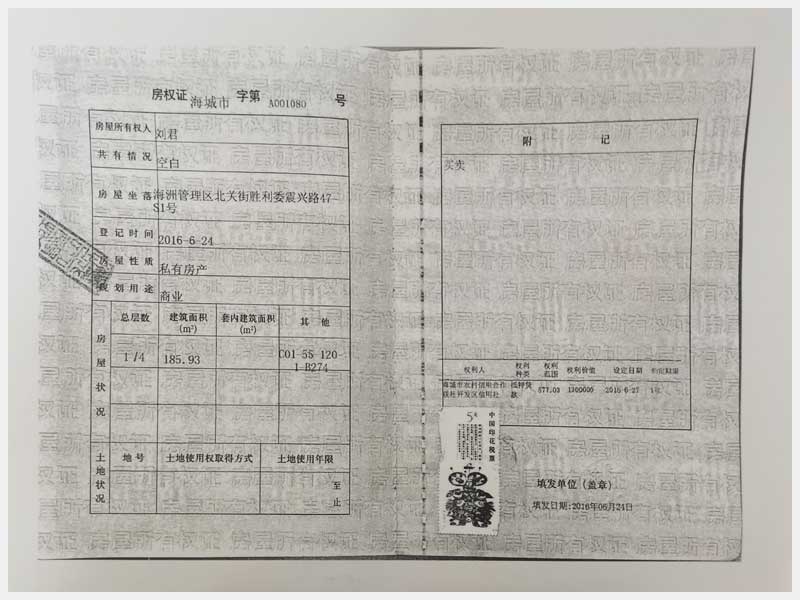 房权证 海城市 字第 A001080 号
房屋所有权人 刘君
共有情况 空白
房屋坐落 海洲管理区北关街胜利委震兴路47-
S1号
登记时间 2016-6-24
房屋性质 私有房产
规划用途 商业
房屋状况 总层数 建筑面积(m²) 套内建筑面积(m²) 其他
1/4 185.93 C01-55-120-
1-B274
土地状况 地号 土地使用权取得方式 土地使用年限
至
止
附记
买卖
权利人 权利种类 权利范围 权利价值 设定日期 约定期限
海城市农村信用合作 抵押贷 877.03 1300000 2016-6-27
联社开发区信用社 款
5元
中国印花税票
填发单位（盖章）
填发日期:2016年06月24日